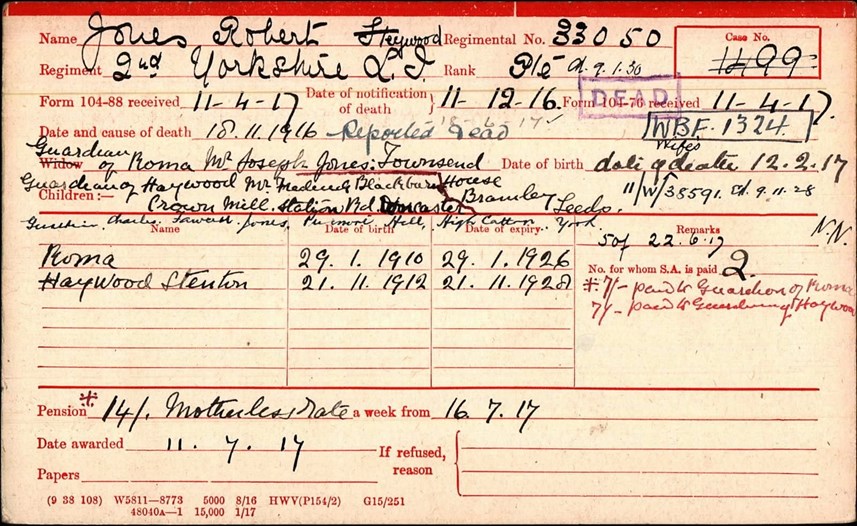 Name Jones Robert Heywood Regimental No. 33050 Case No. 1499
Regiment 2nd Yorkshire L.I. Rank Pte d. 9.1.30
Form 104-88 received 11-4-17 Date of notification of death } 11-12-16. Form 104-76 received 11-4-17.
DEAD
Date and cause of death 18.11.1916 Reported Dead WBF. 1324
Guardian Wifes
Widow of Roma Mr Joseph Jones: Townsend Date of birth date of death 12.2.17
Guardian of Haywood Mr Blackburn House 11/W/38591. d. 9.11.28
Children:— Crown Mill. Station Rd. Doncaster Bramley Leeds.
Charles Fawcett Jones, Hill, High Catton. York.
Name Date of birth Date of expiry. Remarks N.N.
50f 22.6.17
Roma 29.1.1910 29.1.1926 No. for whom S.A. is paid 2.
Haywood Stenton 21.11.1912 21.11.1928 * 7/- paid to Guardian of Roma
7/- paid to Guardian of Haywood
Pension * 14/. Motherless rate a week from 16.7.17
Date awarded 11.7.17 If refused, reason {
Papers
(9 38 108) W5811—8773 5000 8/16 HWV(P154/2) G15/251
48040A—1 15,000 1/17